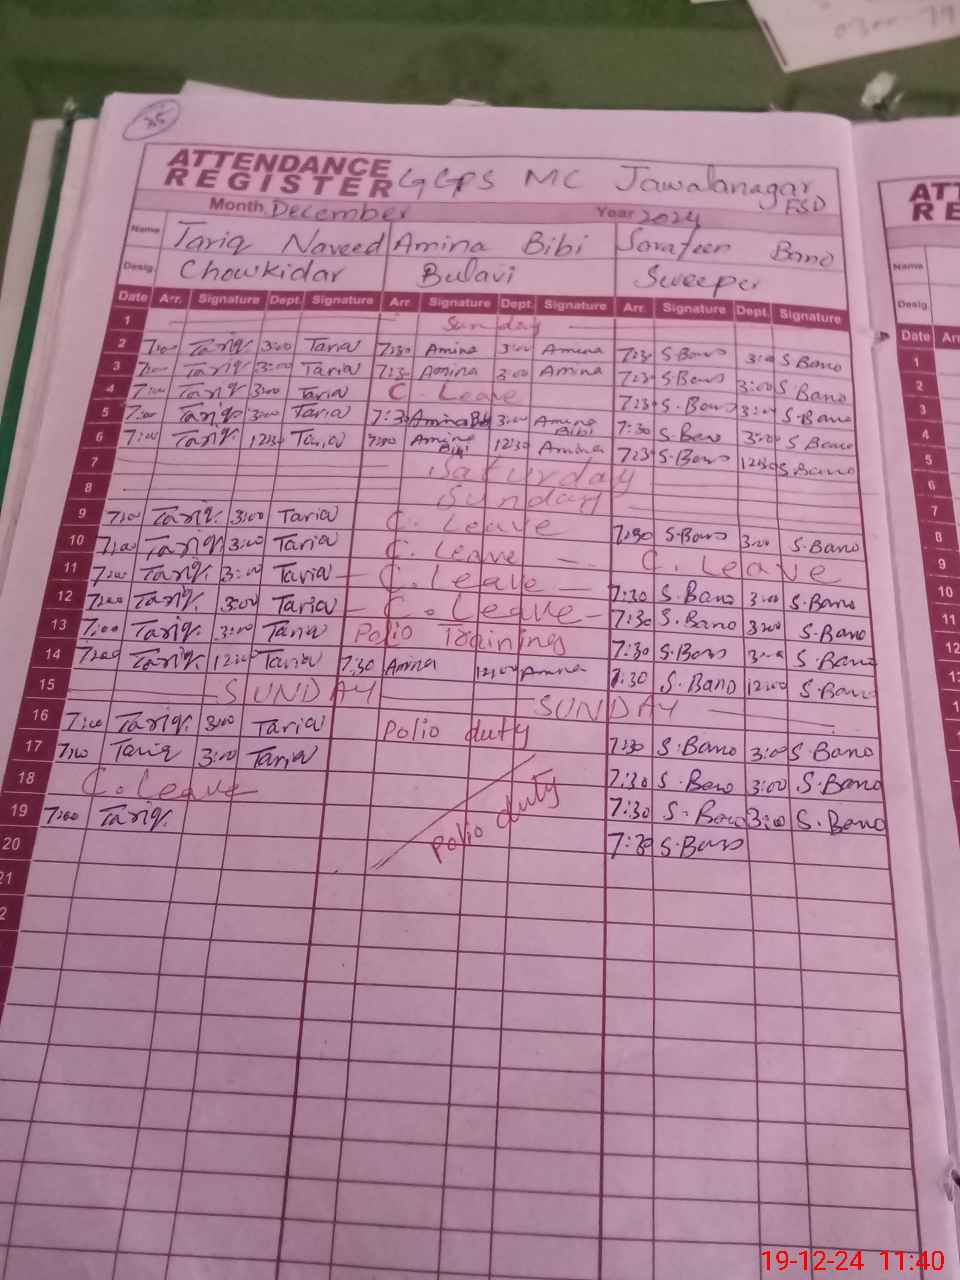 35
ATTENDANCE
REGISTER GGPS MC Jawalanagar
FSD
Month December Year 2024
Name Tariq Naveed Amina Bibi Sarafeen Bano
Desig. Chowkidar Bulavi Sweeper
Date Arr. Signature Dept. Signature Arr. Signature Dept. Signature Arr. Signature Dept. Signature
1 Sunday
2 7:00 Tariq. 3:00 Tariq 7:30 Amina 3:00 Amina 7:30 S.Bano 3:00 S Bano
3 7:00 Tariq. 3:00 Tariq 7:30 Amina 3:00 Amina 7:30 S Bano 3:00 S Bano
4 7:00 Tariq 3:00 Tariq C. Leave 7:30 S.Bano 3:00 S.Bano
5 7:00 Tariq. 3:00 Tariq 7:30 Amina Bibi 3:00 Amina Bibi 7:30 S. Bano 3:00 S Bano
6 7:00 Tariq. 12:30 Tariq 7:30 Amina Bibi 12:30 Amina 7:30 S.Bano 12:30 S Bano
7 Saturday
8 Sunday
9 7:00 Tariq. 3:00 Tariq C. Leave 7:30 S.Bano 3:00 S.Bano
10 7:00 Tariq. 3:00 Tariq C. Leave C. Leave
11 7:00 Tariq. 3:00 Tariq C. Leave 7:30 S. Bano 3:00 S.Bano
12 7:00 Tariq. 3:00 Tariq C. Leave 7:30 S. Bano 3:00 S.Bano
13 7:00 Tariq. 3:00 Tariq Polio Training 7:30 S.Bano 3:00 S.Bano
14 7:00 Tariq. 12:00 Tariq 7:30 Amina 12:00 Amina 7:30 S.BANO 12:00 S.Bano
15 SUNDAY SUNDAY
16 7:00 Tariq. 3:00 Tariq Polio duty 7:30 S.Bano 3:00 S.Bano
17 7:00 Tariq 3:00 Tariq 7:30 S.Bano 3:00 S.Bano
18 C. Leave Polio duty 7:30 S.Bano 3:00 S.Bano
19 7:00 Tariq. 7:30 S.Bano
20
21
2
ATT
RE
Name
Desig.
Date Arr
1
2
3
4
5
6
7
8
9
10
11
12
19-12-24 11:40